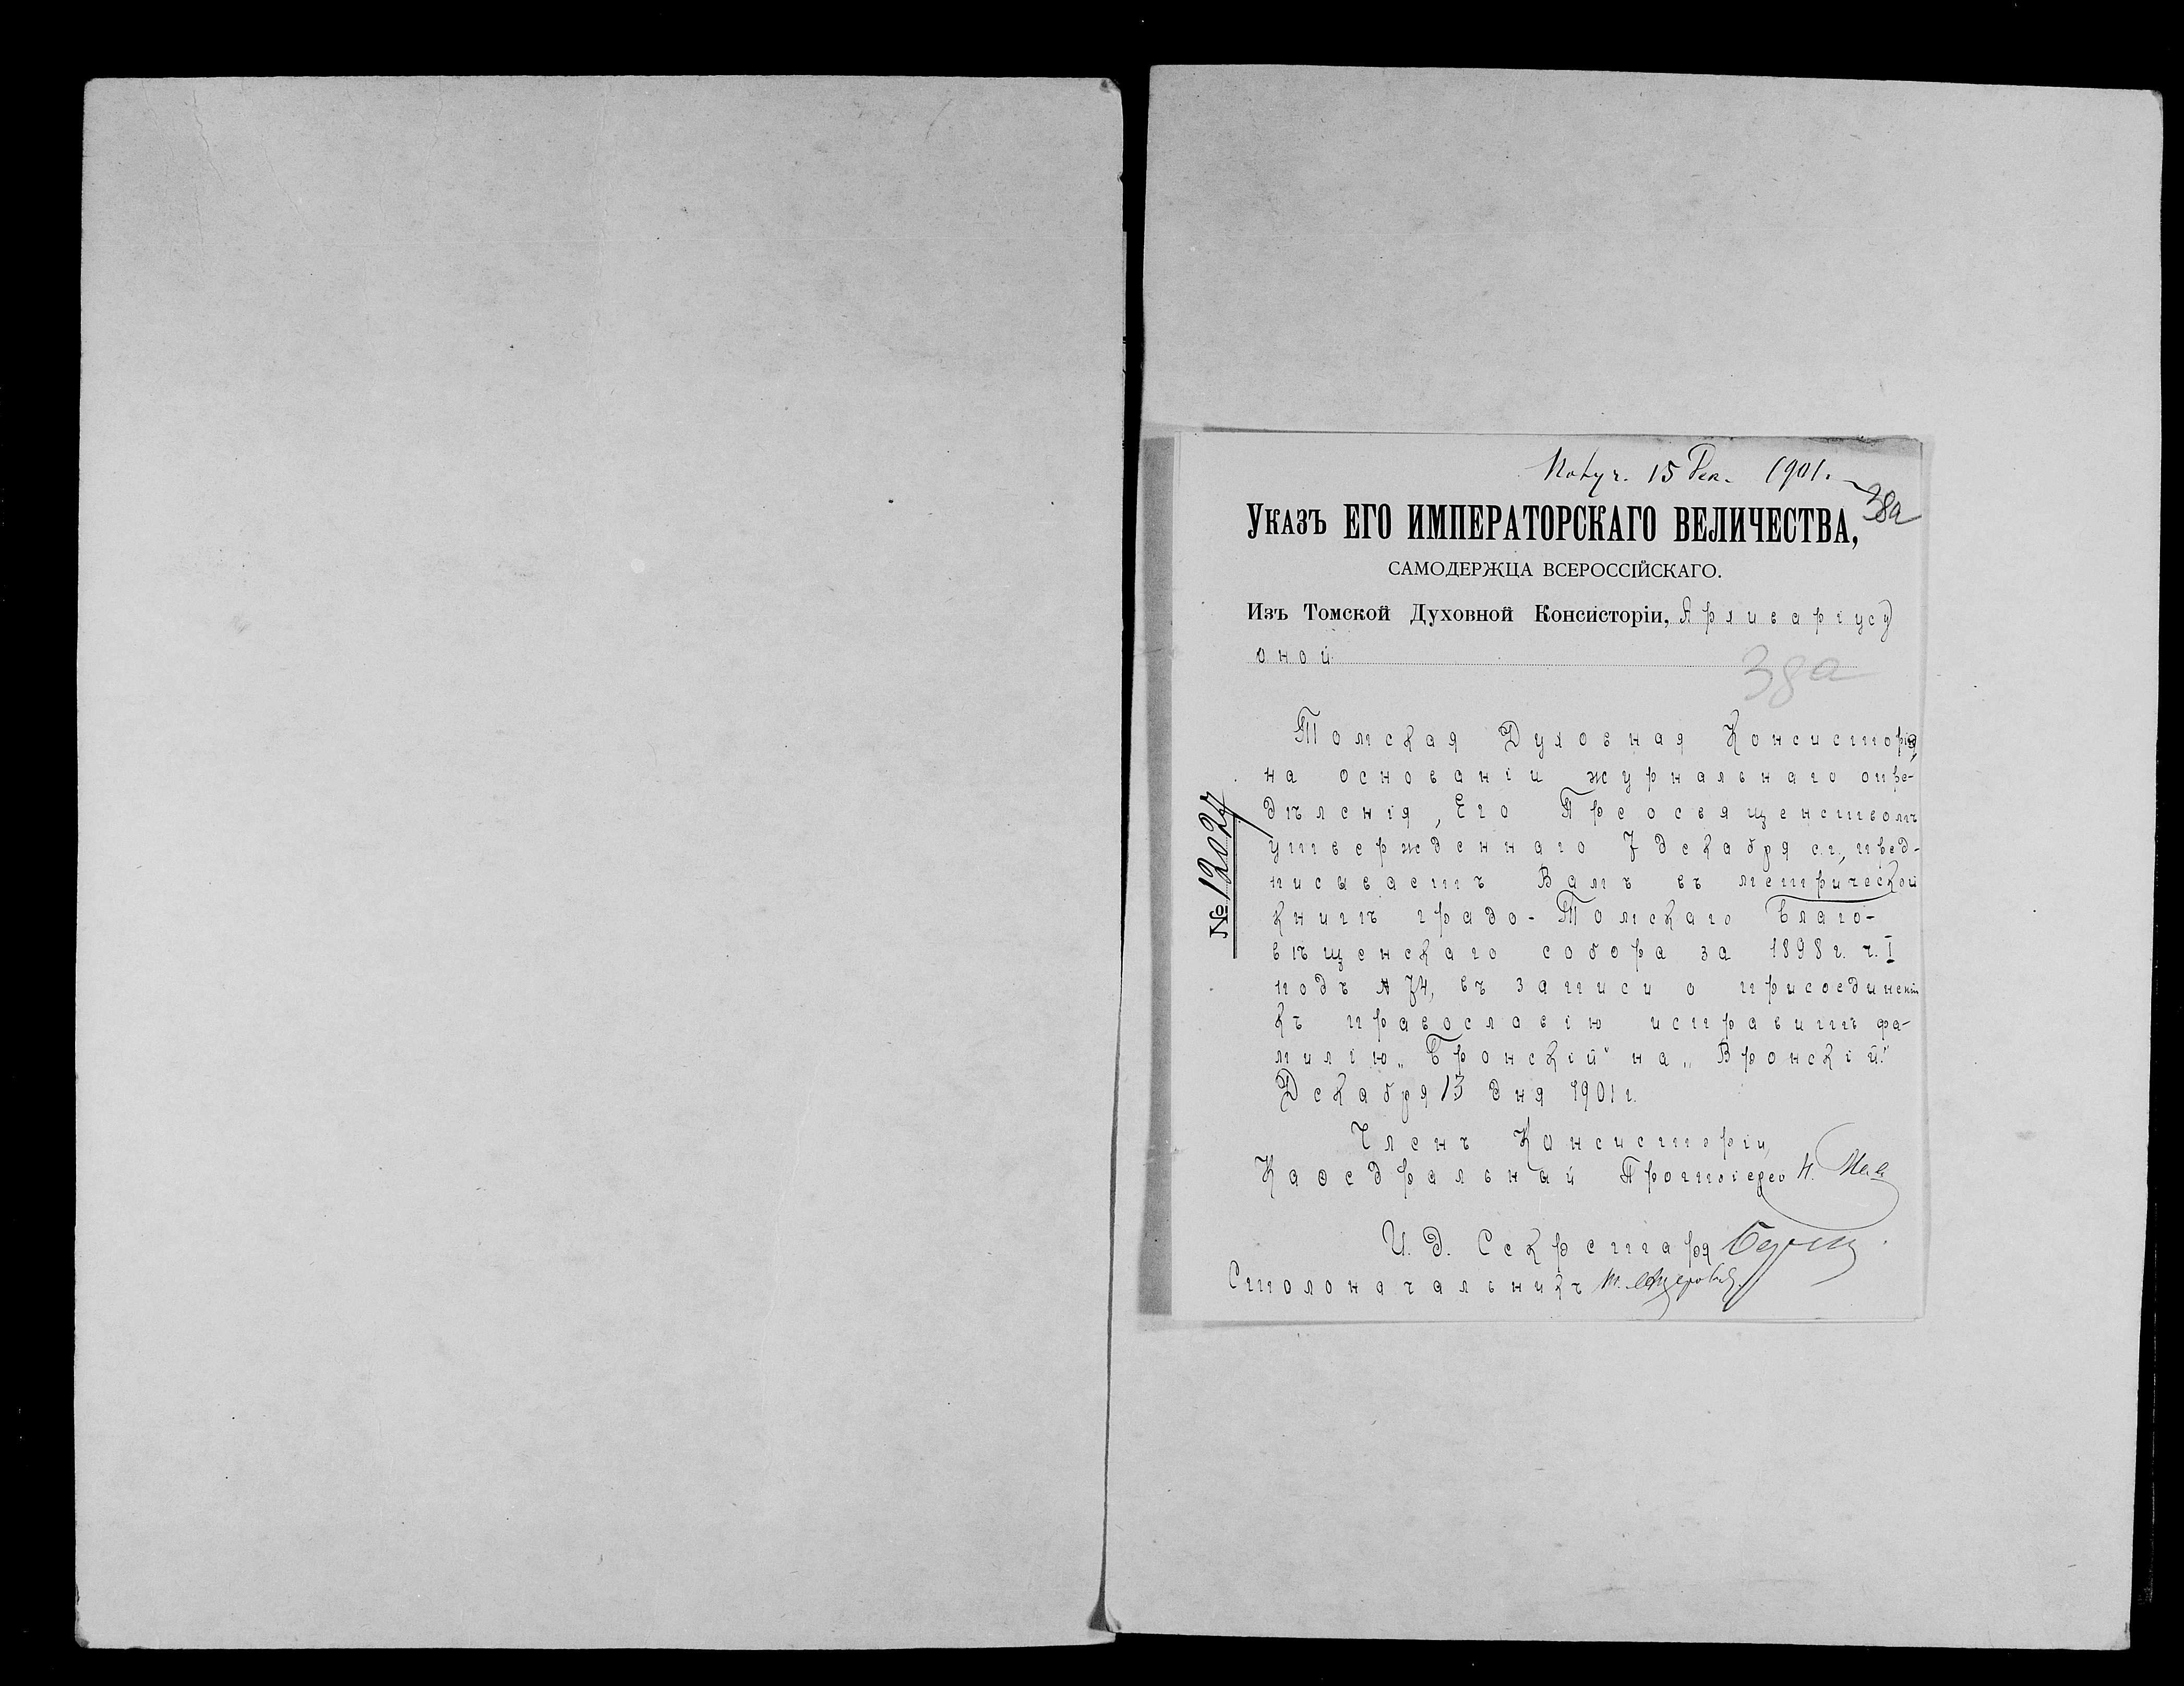 Получ. 15 Дек. 1901.
38а
Указъ ЕГО ИМПЕРАТОРСКАГО ВЕЛИЧЕСТВА,
САМОДЕРЖЦА ВСЕРОССІЙСКАГО.
Изъ Томской Духовной Консисторіи, Архиваріусу
оной
38а
Томская Духовная Консисторія,
на основаніи журнальнаго опре-
дѣленія, Его Преосвященствомъ
утвержденнаго 7 декабря с.г., пред-
писываетъ Вамъ въ метрической
книгѣ градо-Томскаго Благо-
вѣщенскаго собора за 1898 г. ч. I
подъ № 74, въ записи о присоединеніи
къ православію исправить фа-
милію „Бронскій“ на „Вронскій.“
Декабря 13 дня 1901 г.
Членъ Консисторіи,
Каѳедральный Протоіерей Н.
И. д. Секретаря
Столоначальникъ
№ 12024